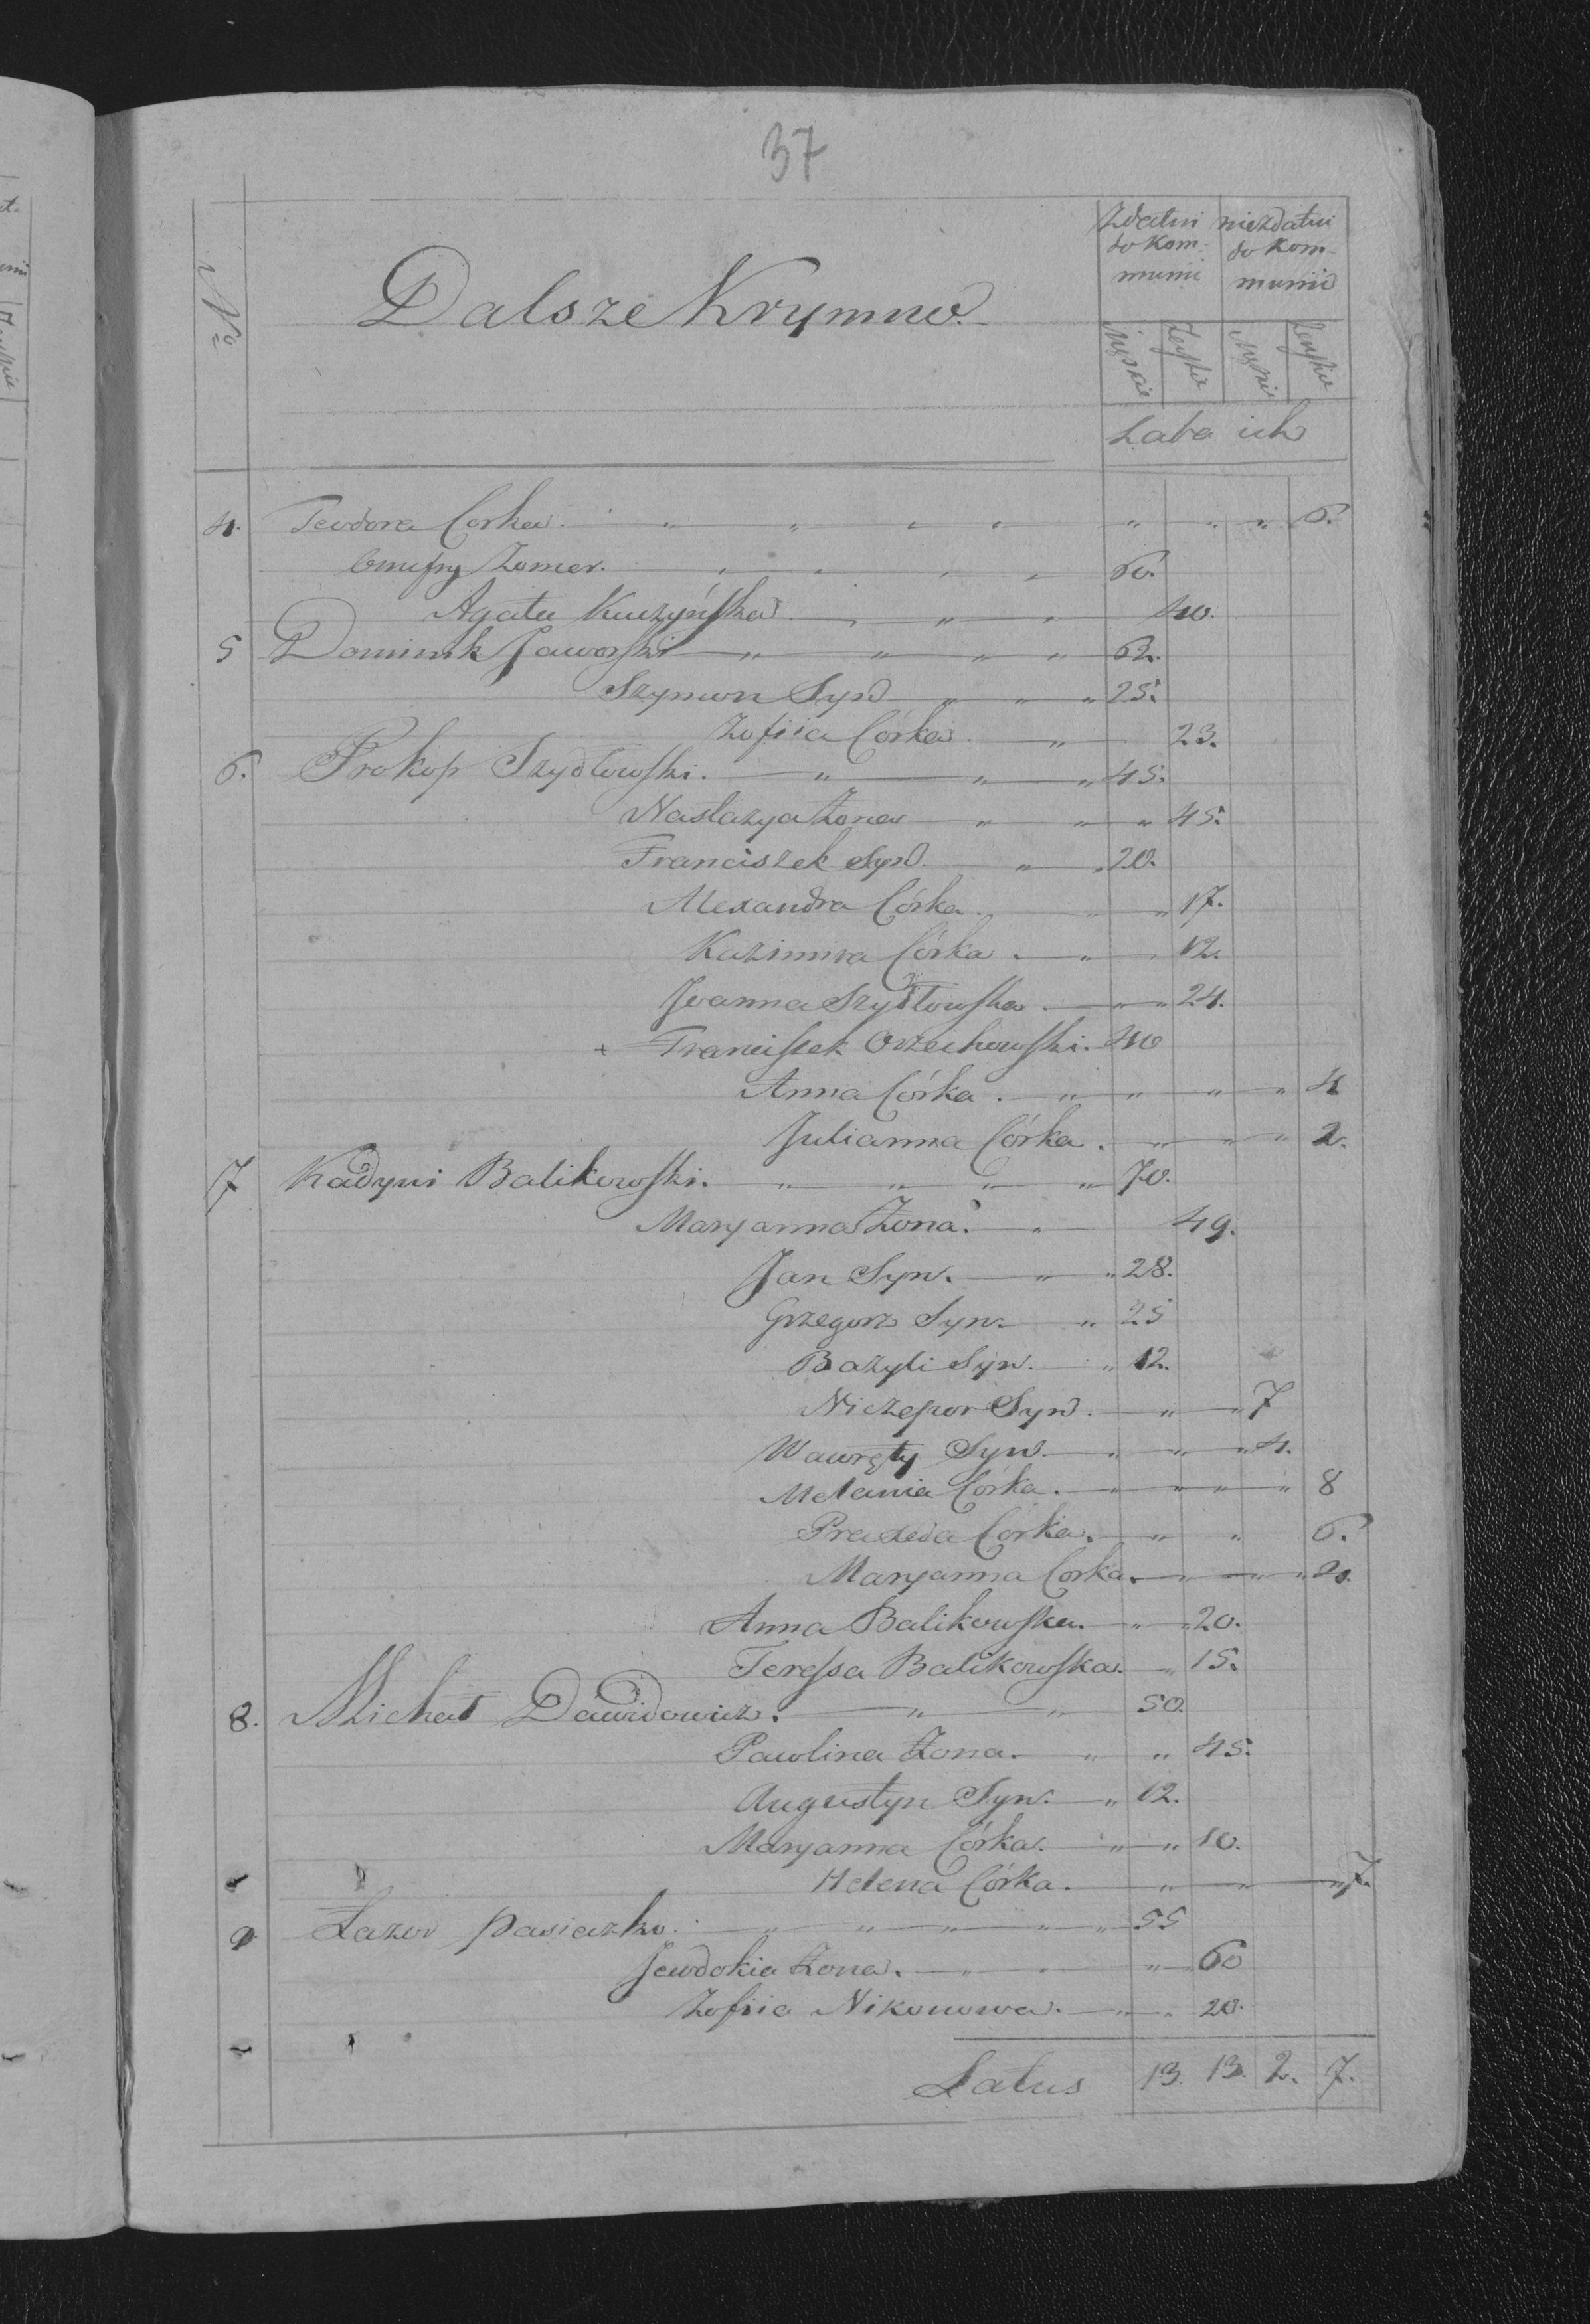 37
No
Dalsze Krymno.
Zdatni do Kommunii
niezdatni do Kommunii
Męskie Żeńskie Męskie Żeńskie
Lata ich
4. Teodora Corka. " " " " " " " 6.
Onufry Zomer. " " " " 60.
Agata Kuczyńska " " " 40.
5 Dominik Jaworski " " " " 62.
Szymon Syn " " " 25.
Zofiia Córka. " 23.
6. Prokop Szydłowski. " " " 45.
Nastazya Żona " " " 45.
Franciszek Syn. " " 20.
Alexandra Córka. " " 17.
Kazimira Córka. " " 12.
Joanna Szydłowska. " " 24.
+ Franciszek Orzechowski. 40
Anna Córka. " " " " 4
Julianna Córka. " " " 2.
7 Kadyni Balikowski. " " " " 70.
Maryanna Żona. " 49.
Jan Syn. " " 28.
Grzegorz Syn. " 25
Bazyli Syn. " 12.
Niczepor Syn. " " 7
Wawręty Syn. " " " 4.
Melania Córka. " " " " 8
Praxeda Córka. " " 6.
Maryanna Corka. " " " 2.
Anna Balikowska. " " 20.
Teressa Balikowska. " 15.
8. Michał Dawidowicz. " " 50.
Pawlina Żona. " " 45.
Augustyn Syn. " 12.
Maryanna Córka. " " 10.
Helena Córka. " " " 7.
9 Łazor Pasiezko. " " " " " 55
Jewdokia Żona. " " " 60
Zofiia Nikonowa. " " 20.
Latus 13. 13. 2. 7.